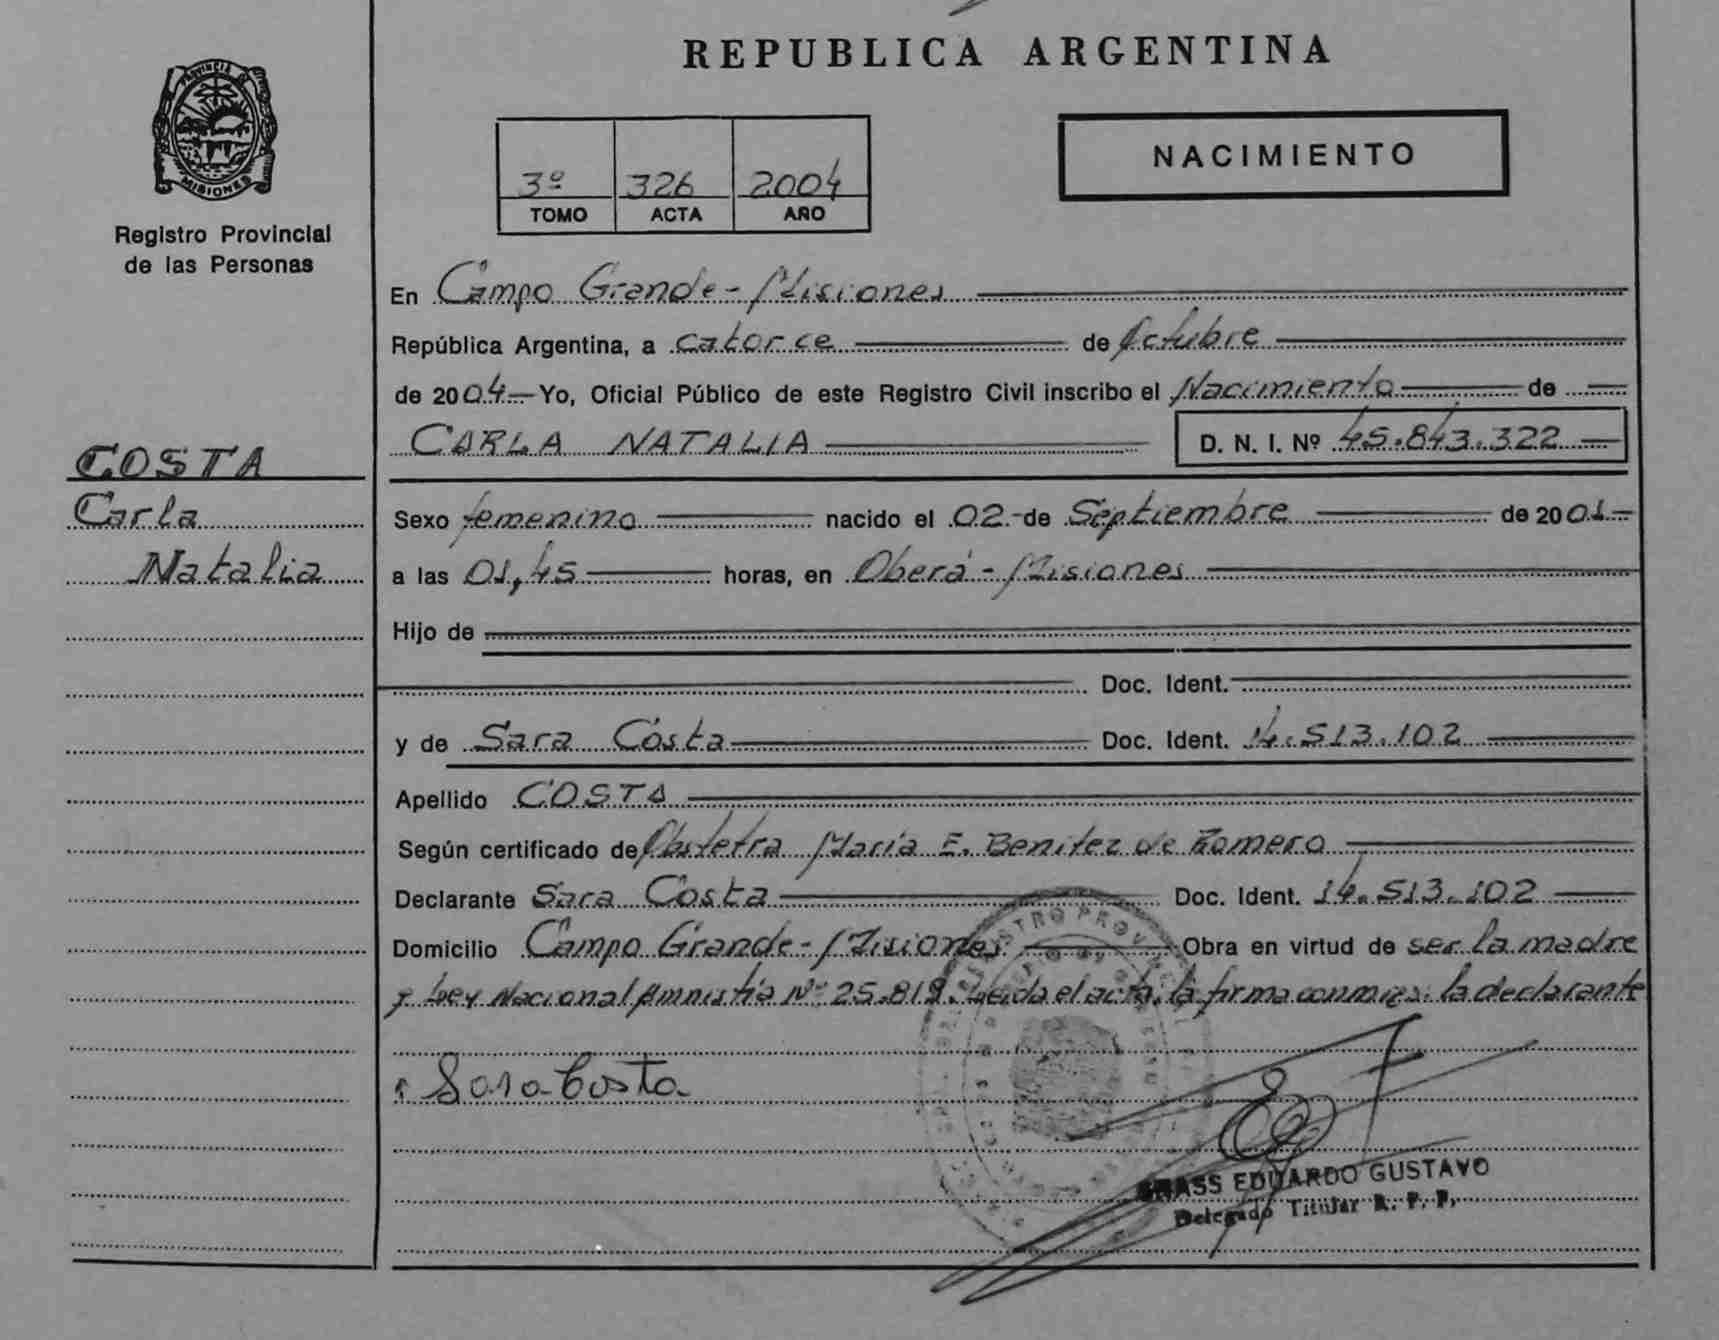 REPUBLICA ARGENTINA
PROVINCIA DE
MISIONES
Registro Provincial
de las Personas
3º 326 2004
TOMO ACTA AÑO
NACIMIENTO
En Campo Grande - Misiones
República Argentina, a catorce de Octubre
de 2004 Yo, Oficial Público de este Registro Civil inscribo el Nacimiento de
CARLA NATALIA D. N. I. Nº 45.843.322
COSTA
Carla
Natalia
Sexo femenino nacido el 02 de Septiembre de 2001
a las 01,45 horas, en Oberá - Misiones
Hijo de
Doc. Ident.
y de Sara Costa Doc. Ident. 14.513.102
Apellido COSTA
Según certificado de Obstetra María E. Benitez de Romero
Declarante Sara Costa Doc. Ident. 14.513.102
Domicilio Campo Grande - Misiones Obra en virtud de ser la madre
y Ley Nacional Amnistía Nº 25.819. Leida el acta, la firma conmigo: la declarante
Sara Costa
EDUARDO GUSTAVO
Delegado Titular R. P. P.